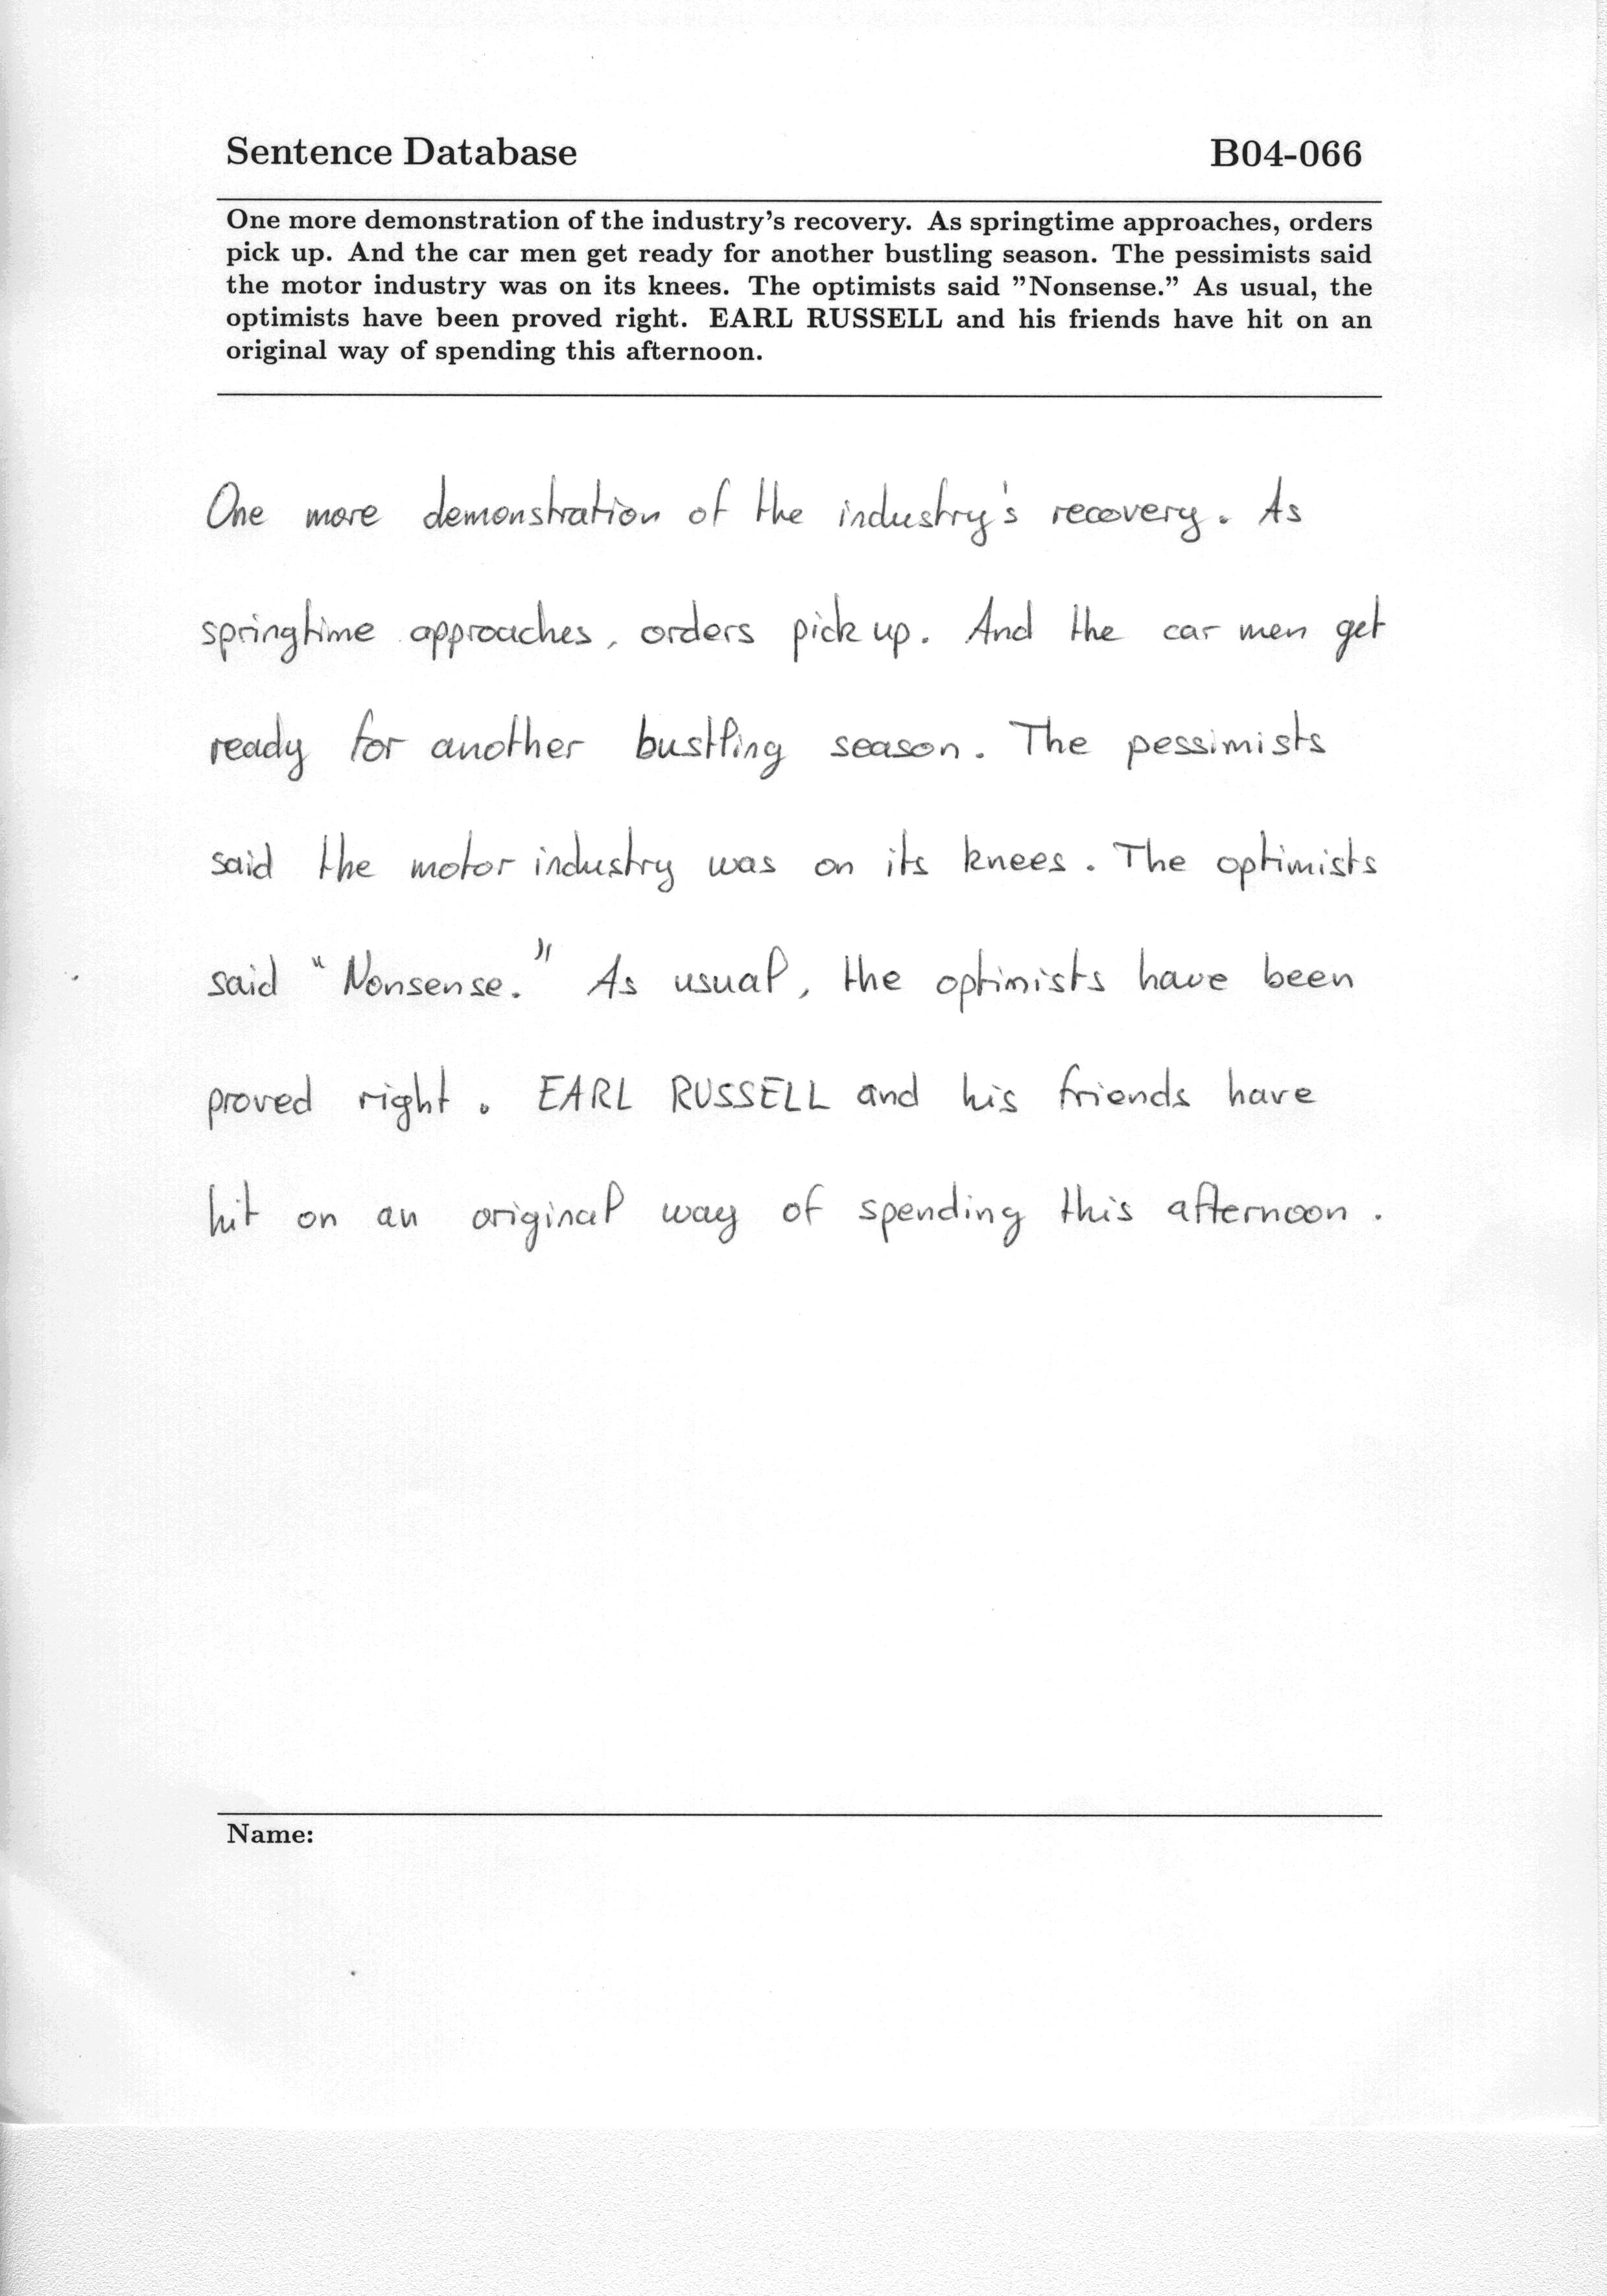 Sentence Database B04-066
One more demonstration of the industry's recovery. As springtime approaches, orders
pick up. And the car men get ready for another bustling season. The pessimists said
the motor industry was on its knees. The optimists said "Nonsense." As usual, the
optimists have been proved right. EARL RUSSELL and his friends have hit on an
original way of spending this afternoon.
One more demonstration of the industry's recovery. As
springtime approaches, orders pick up. And the car men get
ready for another bustling season. The pessimists
said the motor industry was on its knees. The optimists
said "Nonsense." As usual, the optimists have been
proved right. EARL RUSSELL and his friends have
hit on an original way of spending this afternoon.
Name: